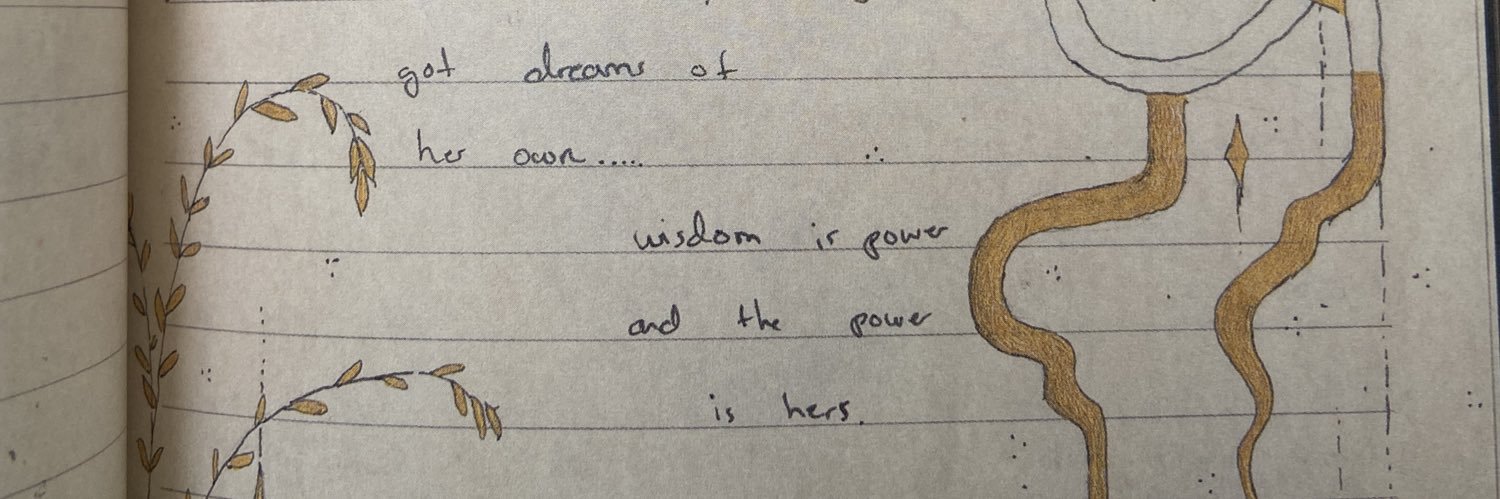 got dreams of
her own.....
wisdom is power
and the power
is hers.